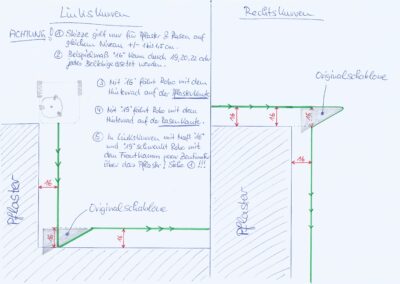 Linkskurven
ACHTUNG! ① Skizze gilt nur für Pflaster & Rasen auf
gleichem Niveau +/- 1 bis 1,5 cm.
② Beispielmaß "16" kann durch 19, 20, 22 oder
jedes Beliebige ersetzt werden.
③ Mit "16" fährt Robo mit dem
Hinterrad auf der Pflasterkante.
④ Mit "19" fährt Robo mit dem
Hinterrad auf der Rasenkante.
⑤ In Linkskurven mit Maß "16"
und "19" schwenkt Robo mit
den Frontkanten paar Zentimeter
über das Pflaster! Siehe ① !!!
16
Pflaster
Originalschablone
16
16
Rechtskurven
Originalschablone
16
16
16
16
Pflaster
16